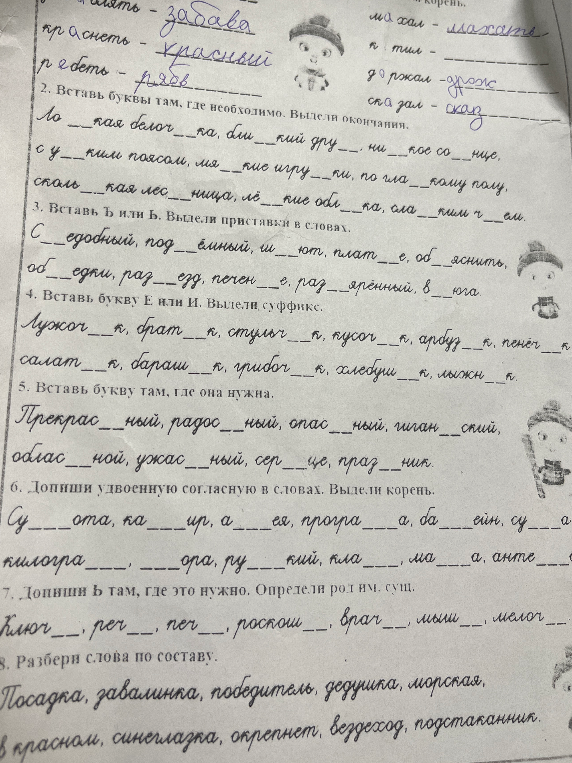 корень.
лять - забава
махал - махать
краснеть - красный
к тил -
рябеть - ряб
держал - дрож
сказал - сказ
2. Вставь буквы там, где необходимо. Выдели окончания.
Ло__кая белоч__ка, бли__кий дру__, ни__кое со__нце,
с у__ким поясом, мя__кие игру__ки, по гла__кому полу,
сколь__кая лес__ница, лё__кие обл__ка, сла__ким ч__ем.
3. Вставь Ъ или Ь. Выдели приставки в словах.
С__едобный, под__ёмный, ш__ют, плат__е, об__яснить,
об__едки, раз__езд, печен__е, раз__ярённый, в__юга.
4. Вставь букву Е или И. Выдели суффикс.
Лужоч__к, брат__к, стульч__к, кусоч__к, арбуз__к, пенёч__к
салат__к, бараш__к, грибоч__к, хлебуш__к, лыжн__к.
5. Вставь букву там, где она нужна.
Прекрас__ный, радос__ный, опас__ный, гиган__ский,
облас__ной, ужас__ный, сер__це, праз__ник.
6. Допиши удвоенную согласную в словах. Выдели корень.
Су___ота, ка___ир, а___ея, програ___а, ба___ейн, су___а
килогра___, ___ора, ру___кий, кла___, ма___а, анте___
7. Допиши Ь там, где это нужно. Определи род им. сущ.
Ключ__, реч__, печ__, роскош__, врач__, мыш__, мелоч__
8. Разбери слова по составу.
Посадка, завалинка, победитель, дедушка, морская,
в красном, синеглазка, окрепнет, вездеход, подстаканник.